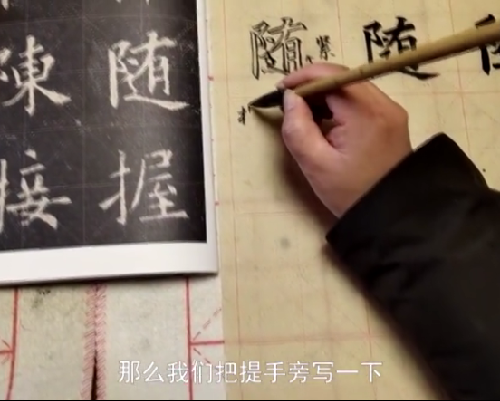 陳 随
接 握
随 紧 随
那么我们把提手旁写一下